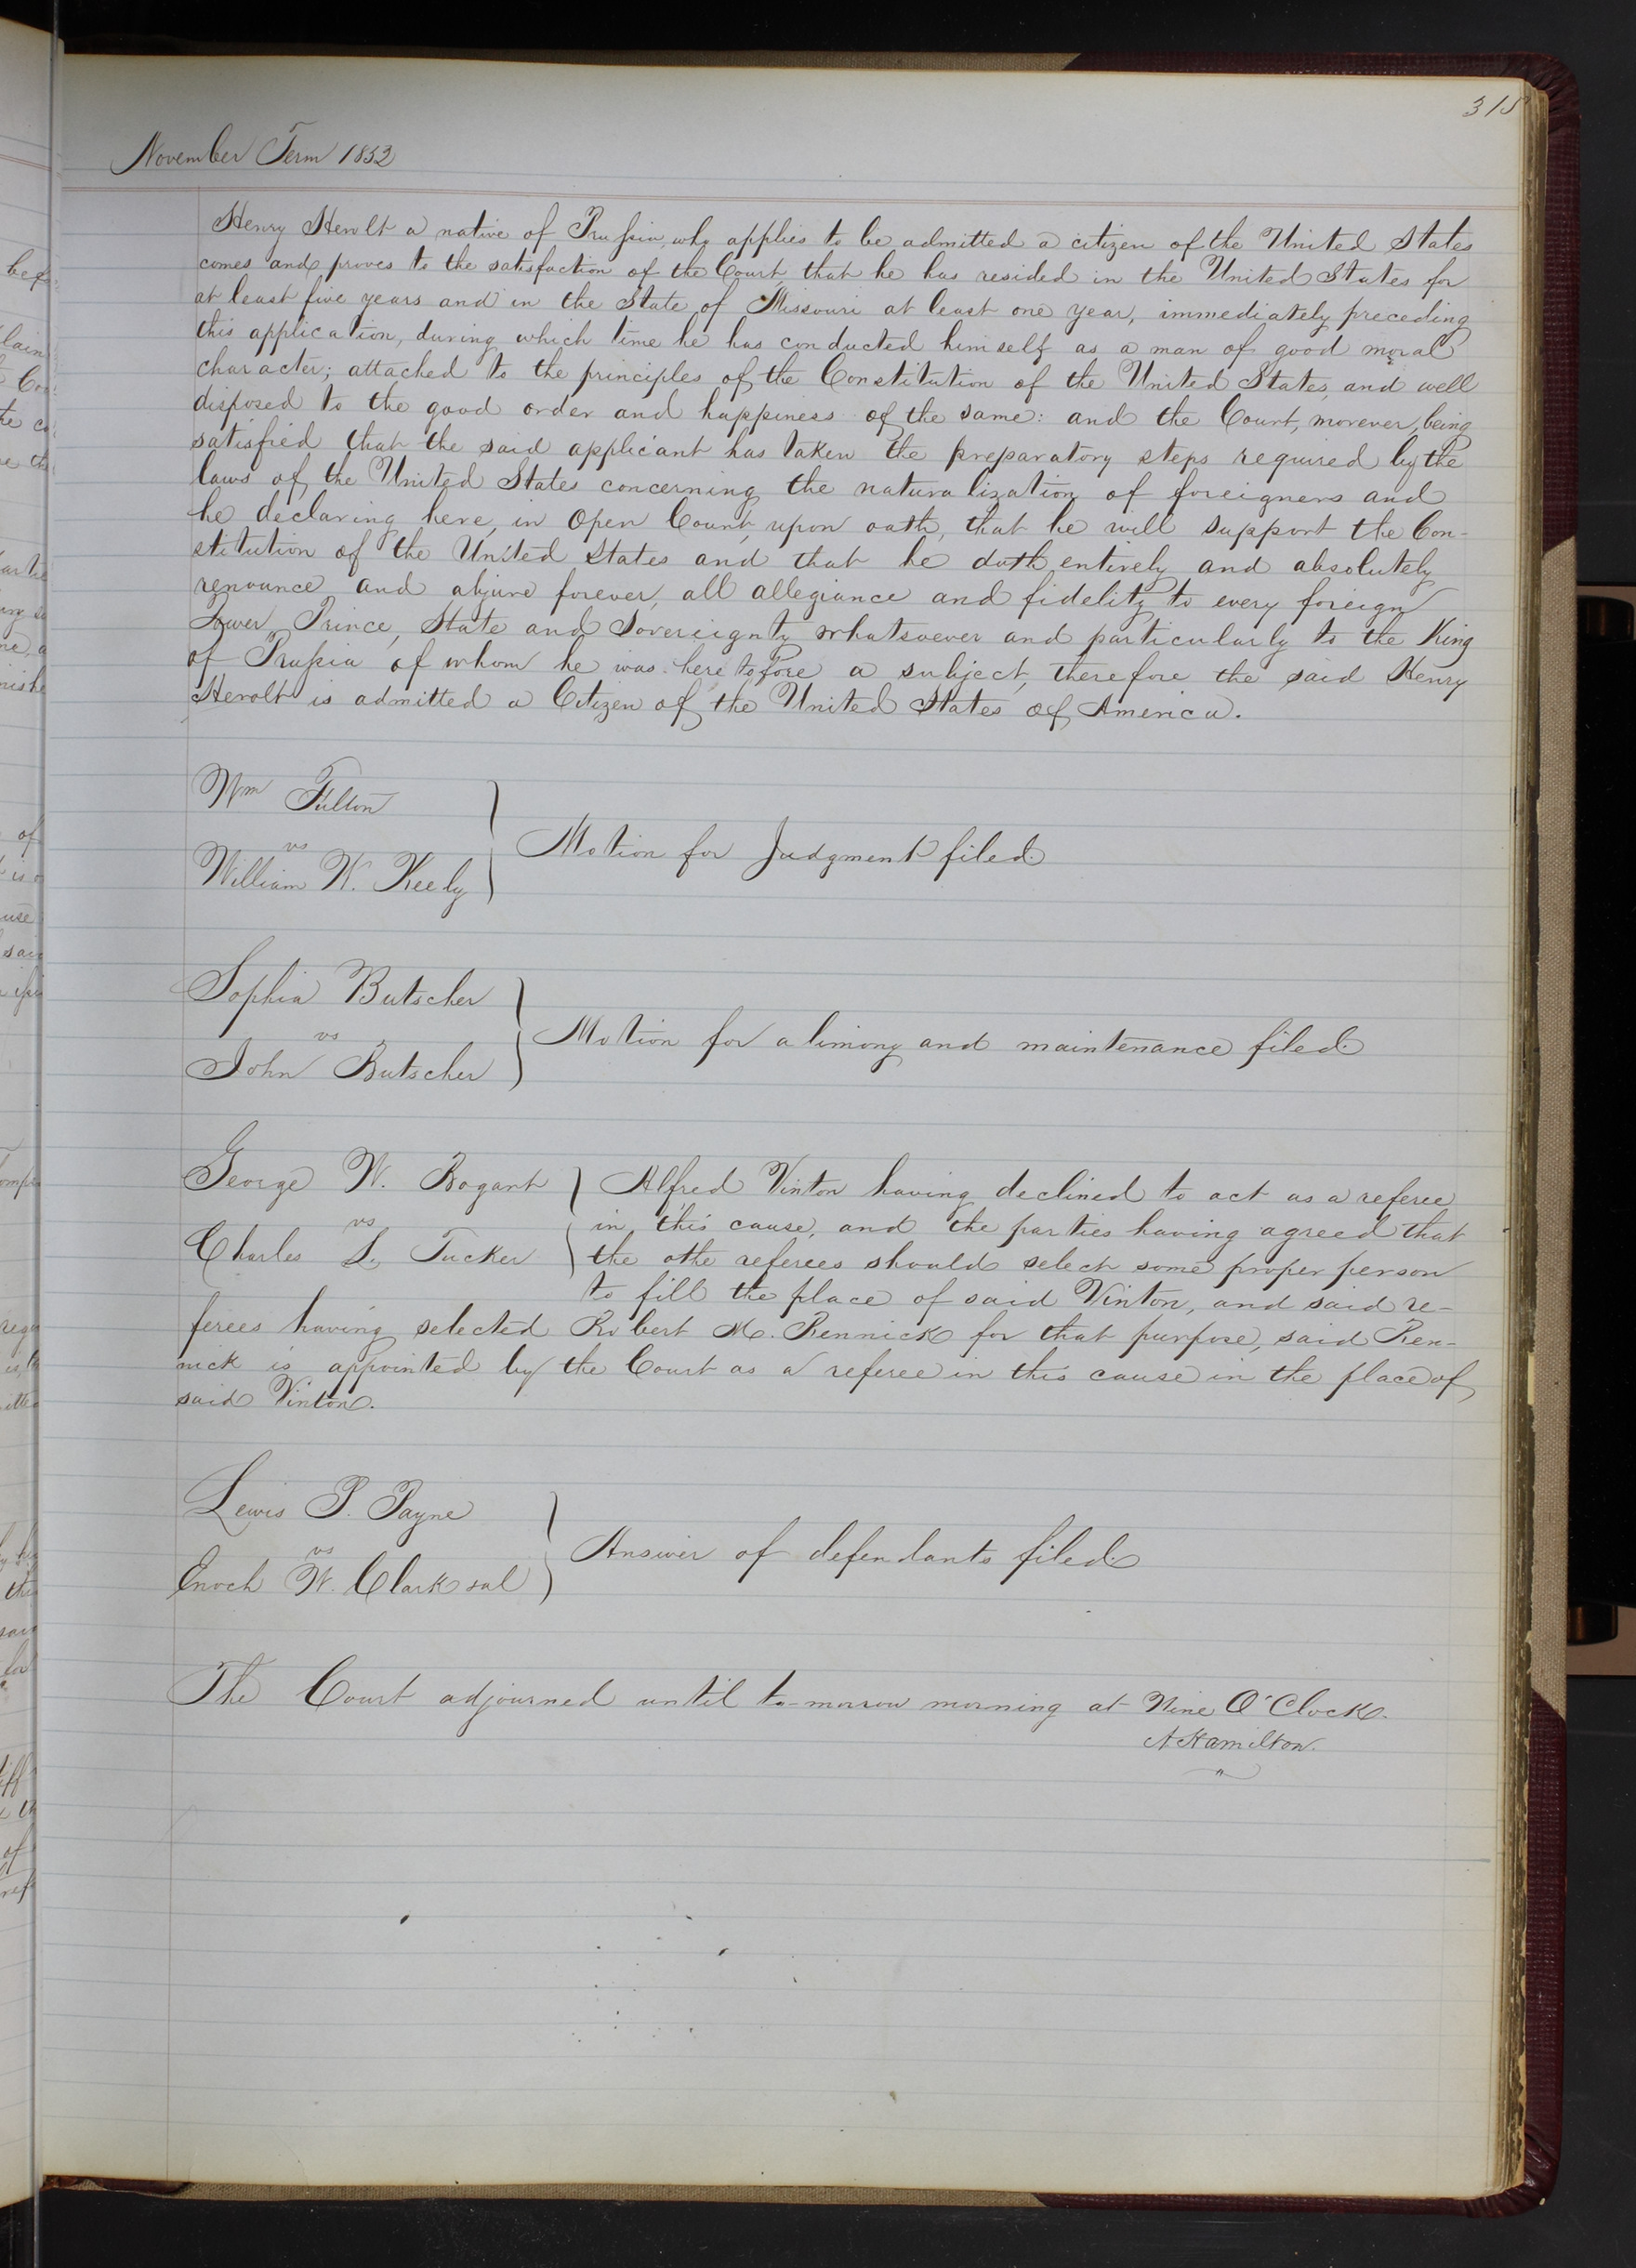 315
November Term 1852
Henry Herolt a native of Prussia, who applies to be admitted a citizen of the United States
comes and proves to the satisfaction of the Court, that he has resided in the United States for
at least five years and in the State of Missouri at least one year, immediately preceding
this application, during which time he has conducted himself as a man of good moral
character; attached to the principles of the Constitution of the United States, and well
disposed to the good order and happiness of the same: and the Court, morever, being
satisfied that the said applicant has taken the preparatory steps required by the
laws of the United States concerning the naturalization of foreigners and
he declaring here, in Open Court, upon oath, that he will support the Con-
stitution of the United States and that he doth entirely and absolutely
renounce and abjure forever, all allegiance and fidelity to every foreign
Power, Prince, State and Sovereignty whatsoever and particularly to the King
of Prussia of whom he was heretofore a subject, therefore the said Henry
Herolt is admitted a Citizen of the United States of America.
Wm Fulton
vs
William W. Keely
Motion for Judgment filed.
Sophia Butscher
vs
John Butscher
Motion for alimony and maintenance filed.
George W. Bogart
vs
Charles L. Tucker
Alfred Vinton having declined to act as a referee
in this cause, and the parties having agreed that
the othe referees should select some proper person
to fill the place of said Vinton, and said re-
ferees having selected Robert M. Rennick for that purpose, said Ren-
nick is appointed by the Court as a referee in this cause in the place of
said Vinton.
Lewis P. Payne
vs
Enoch W. Clark
Answer of defendants filed.
The Court adjourned until to-morrow morning at Nine O'Clock.
A Hamilton.